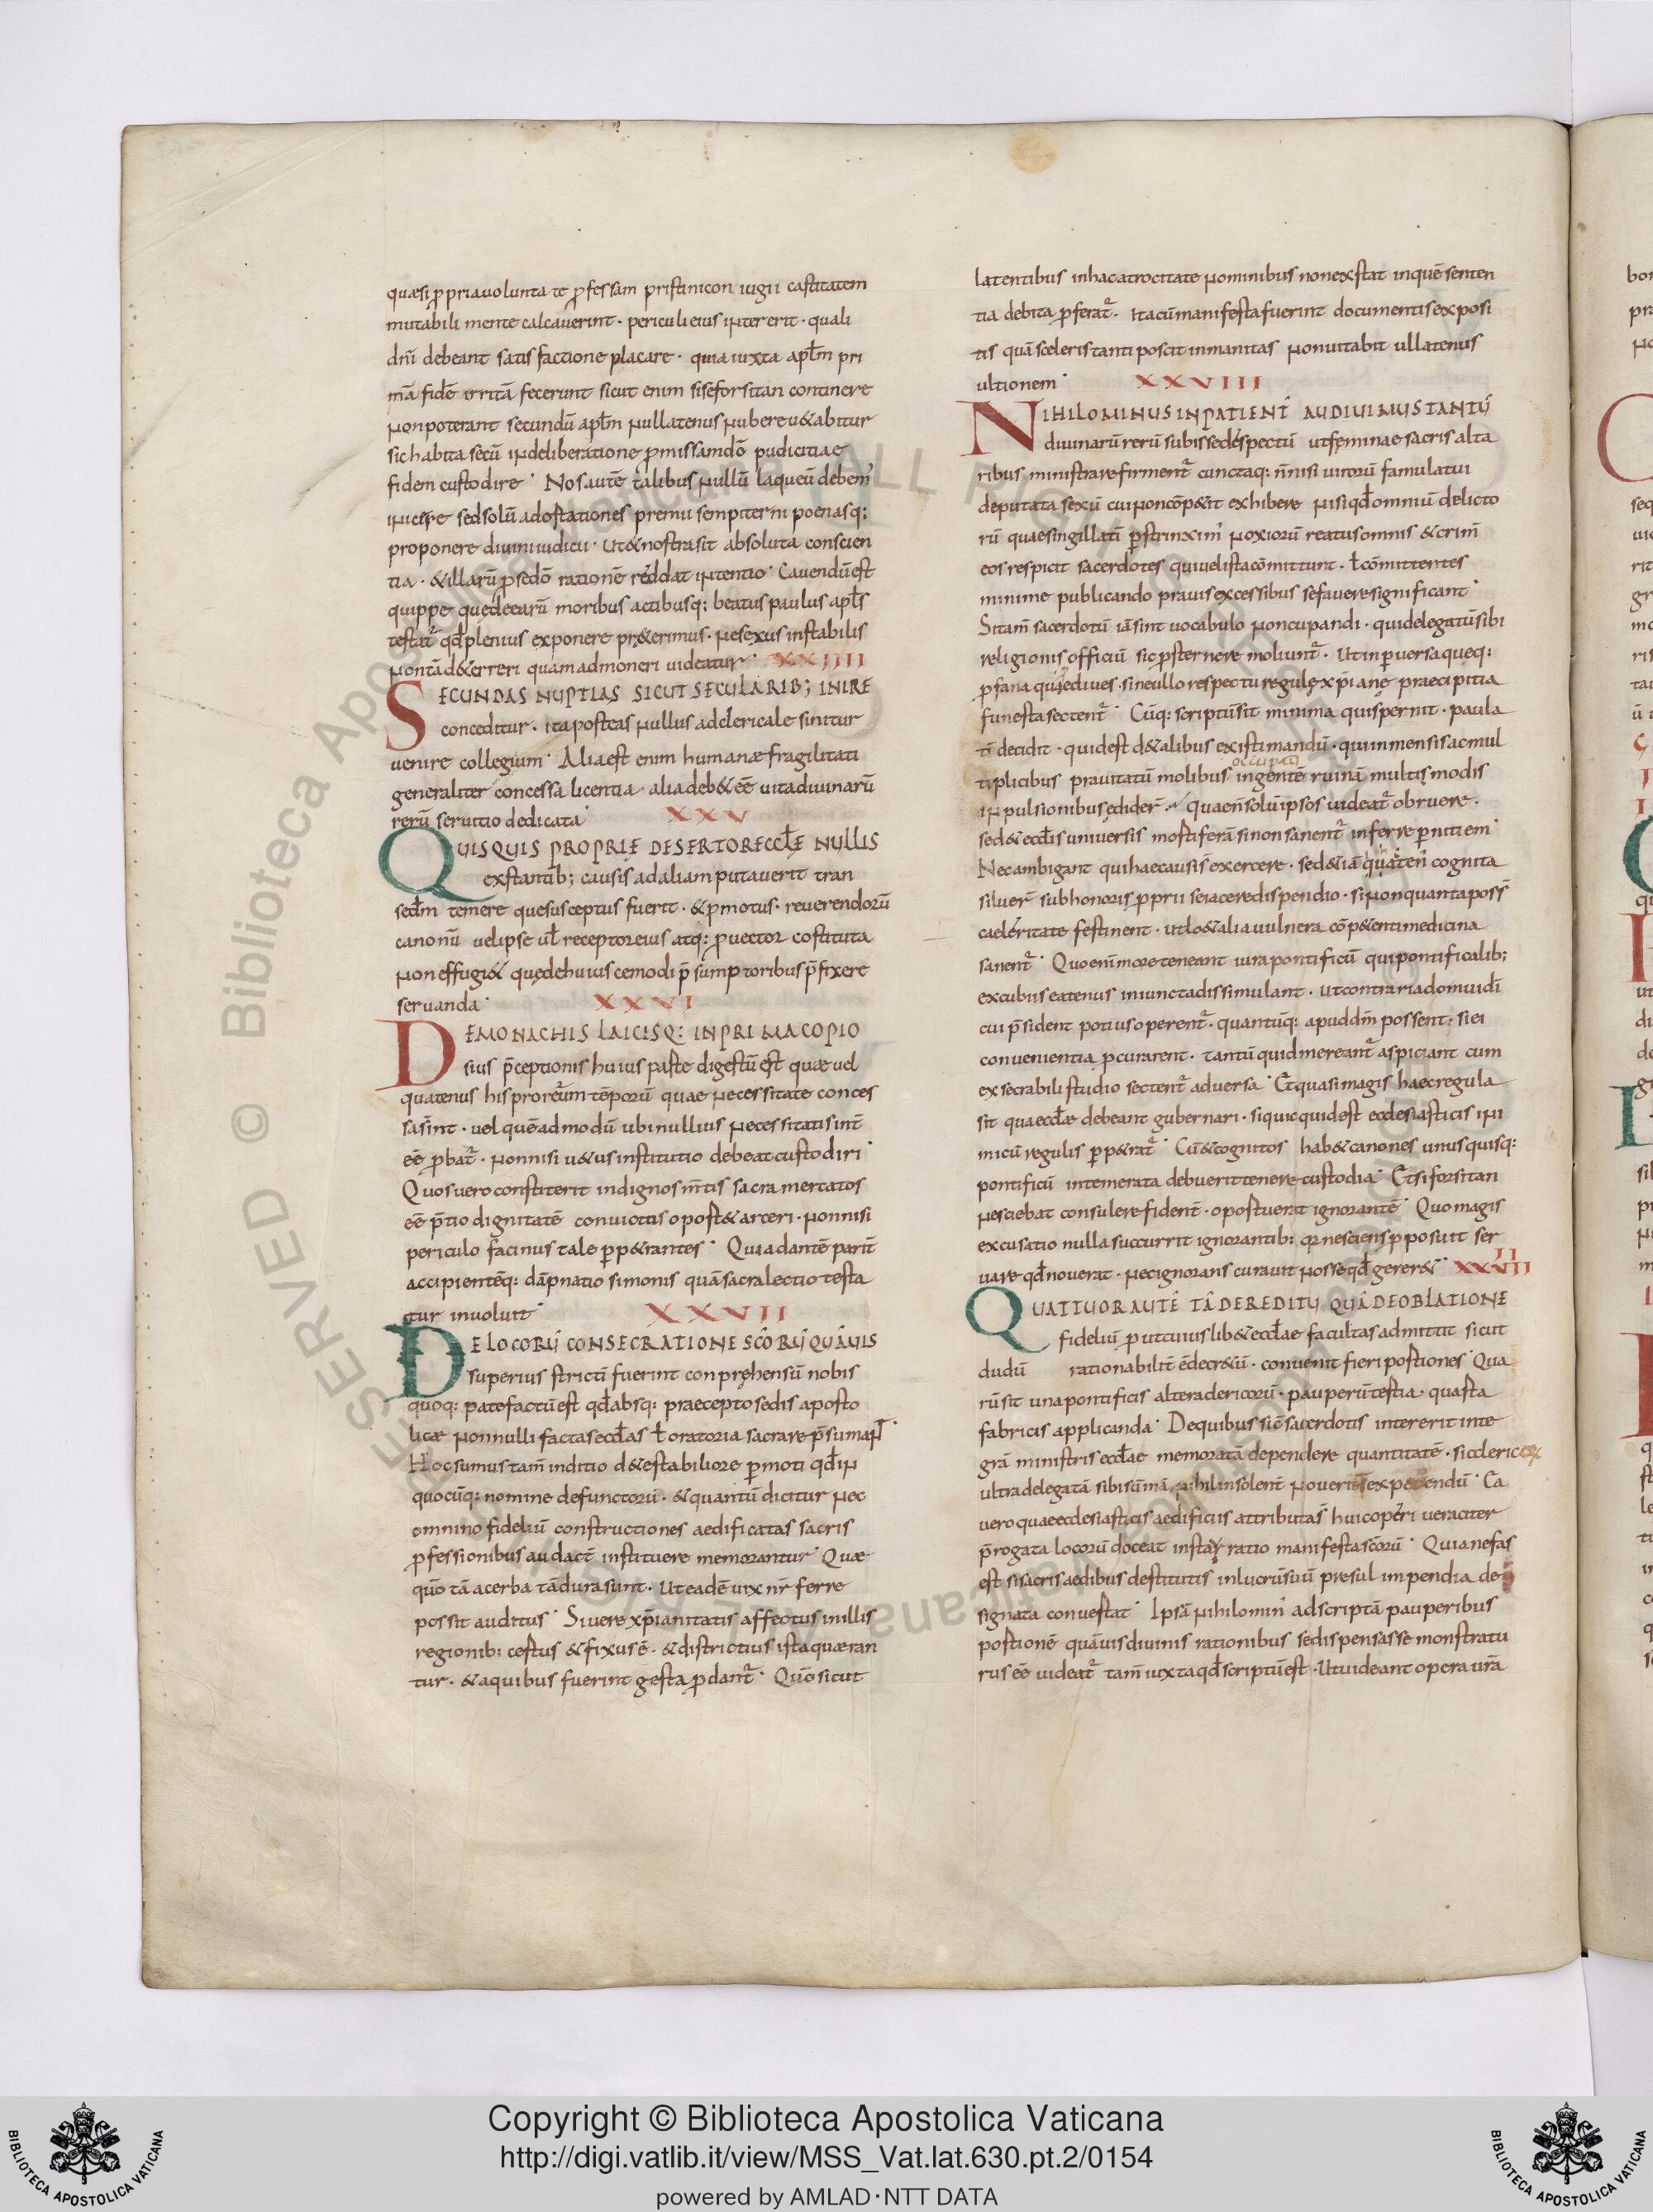 quasi ꝓpria uolunta te ꝓfessam pristini con iugii castitatem
mutabili mente calcauerint · periculi eius intererit · quali
dñi debeant satisfactione placare · quia iuxta apłm pri
mā fidē irritā fecerunt sicut enim si se forsitan continere
non poterant secundū apłm nullatenus nubere u&abitur
sic habita secū in deliberatione ꝓmissam dō pudicitiae
fidem custodire · Nos autē talibus nullū laqueū debem᾽
inicere sed solū adortationes premii sempiterni poenasq;
proponere diuini iudicii · Ut & nostra sit absoluta conscien
tia · & illarū ꝓ se dō rationē reddat intentio · Cauendū est
quippe quę de earū moribus actibusq; beatus paulus apłs
testat᷑ qđ plenius exponere pr&erimus · ne sexus instabilis
non tā d&erreri quam admoneri uideatur · XXIIII
SECUNDAS NUPTIAS SICUT SECULARIB; INIRE
conceditur · ita post eas nullus ad clericale sinitur
uenire collegium · Alia est enim humanæ fragilitati
generaliter concessa licentia · alia deb& eē uita diuinarū
rerū seruitio dedicata · XXV
QUISQUIS PROPRIE DESERTOR ECCLĘ NULLIS
exstantib; causis ad aliam putauerit tran
sedm temere que susceptus fuerit · & ꝓmotus · reuerendorū
canonū uel ipse uł receptor eius atq; ꝓuector costituta
non effugi& quę de huiuscemodi p̄sumptoribus p̄fixere
seruanda · XXVI
DE MONACHIS LAICISQ: IN PRIMA COPIO
sius p̄ceptionis huius parte digestū est quæ uel
quatenus his pro rerum tēporū quae necessitate conces
sa sint · uel quē admodū ubi nullius necessitatis int̄
eē ꝓbat᷑ · non nisi u&us institutio debeat custodiri ·
Quos uero constiterit indignos m̄tis sacra mercatos
eē p̄tio dignitatē conuictis oport& arceri · non nisi
periculo facinus tale ꝑp&rantes · Quia dantē parit̄
accipientēq: dāpnatio simonis quā sacra lectio testa
tur inuoluit · XXVII
DE LOCORŪ CONSECRATIONE SCŌRŪ QUĀUIS
superius strictī fuerint conpręhensū nobis
quoq: patefactū est qđ absq: praecepto sedis aposto
licæ nonnulli factas eccłas ł oratoria sacrare p̄sumaɴ̄ ·
Hoc sumus tam̄ inditio d&estabiliore ꝑmoti qđ in
quocūq: nomine defunctorū · & quantū dicitur nec
omnino fideliū constructiones aedificatas sacris
ꝓfessionibus audact̄ instituere memorantur · Quæ
quō tā acerba tā dura sunt · Ut eadē uix nr̄ ferre
possit auditus · Si uere xp̄ianitatis affectus in illis
regionib: certus & fixus ē · & districtius ista quæran
tur · & a quibus fuerint gesta ꝓdant᷑ · Quō sicut
latentibus in hac atrocitate nominibus non exstat in quē senten
tia debita ꝓferat᷑ · Ita cū manifesta fuerint documentis exposi
tis quā sceleris tanti poscit inmanitas non uitabit ullatenus
ultionem · XXVIII
NIHILOMINUS INPATIENT̄ AUDIUIMUS TANTŪ
diuinarū rerū subisse despectū ut feminae sacris alta
ribus ministrare firment᷑ cunctaq: n̄nisi uirorū famulatui
deputata sexū cui non cōp&it exhibere nisi qđ omniū delicto
rū quae singillatī ꝑstrinxim᾽ noxiorū reatus omnis & crim̄
eos respicit sacerdotes qui uel ista cōmittunt · ł cōmittentes
minime publicando prauis excessibus se fauere significant ·
Si tam̄ sacerdotū iā sint uocabulo noncupandi · qui delegatū sibi
religionis officiū sic ꝓsternere moliunt᷑ · Ut in ꝑuersa queq:
ꝓfana quæ diues · sine ullo respectu regulę xp̄ianę praecipitia
funesta sectent᷑ · Cūq: scriptū sit minima qui spernit · paula
tī decidit · quid est d& alibus existimandū · qui inmensis ac mul
occupati
tiplicibus prauitatū molibus ingentē ruinā multis modis
inpulsionibus edider̄ · quae n̄ solū ipsos uideat᷑ obruere ·
sed & ecclis uniuersis mortiferā si non sanent᷑ inferre ꝑnitiem ·
Nec ambigant qui haec ausis exercere · sed & iā quaten᾽ cognita
siluer̄ sub honoris ꝓprii se iacere dispendio · si non quanta poss̄
caeleritate festinent · ut lo& alia uulnera cōp&enti medicina
sanent᷑ · Quo enī more teneant iura pontificū qui pontificalib;
excubiis eatenus iniuncta dissimulant · ut contraria domui dī
cui p̄sident potius operent᷑ · quantūq: apud dm̄ possent · si ei
conuenientia ꝓcurarent · tantū quid mereant᷑ aspiciant cum
exsecrabili studio sectent᷑ aduersa · Et quasi magis haec regula
sit qua ecclæ debeant gubernari · si quicquid est ecclesiasticis ini
micū regulis ꝑp&rat᷑ · Cū & cognitos hab& canones unusquisq:
pontificū intemerata debuerit tenere custodia · Et si forsitan
nesciebat consulere fident̄ · oportuerat ignorantē · Quo magis
excusatio nulla succurrit ignorantib: qr nesciens ꝓposuit ser
uare qđ nouerat · nec ignorans curauit nosse qđ gerer& · XXVIIII
QUATTUOR AUTĒ TĀ DE REDITU QUĀ DE OBLATIONE
fideliū ꝓut cuiuslib& eccłae facultas admittit sicut
dudū rationabilit̄ ē decr&ū · conuenit fieri portiones · Qua
rū sit una pontificis altera clericorū · pauperū tertia · quarta
fabricis applicanda · De quibus sic̄ sacerdotis intererit inte
grā ministris eccłae memoratā dependere quantitatē · sic clericor
ultra delegatā sibi sūmā nihil insolent̄ nouerit expetendū · Ea
uero quae ecclesiasticis aedificiis attributa s̄ huic operi ueraciter
p̄rogata locorū doceat instar ratio manifesta scōrū · Quia nefas
est si sacris aedibus destitutis in lucrū suū presul impendia de
signata conuertat · Ipsā nihilomin᾽ adscriptā pauperibus
portionē quāuis diuinis rationibus se dispensasse monstratu
rus eē uideat᷑ tam̄ iuxta qđ scriptū est · Ut uideant opera ur̄a
Copyright © Biblioteca Apostolica Vaticana
http://digi.vatlib.it/view/MSS_Vat.lat.630.pt.2/0154
powered by AMLAD·NTT DATA
BIBLIOTECA APOSTOLICA VATICANA
BIBLIOTECA APOSTOLICA VATICANA